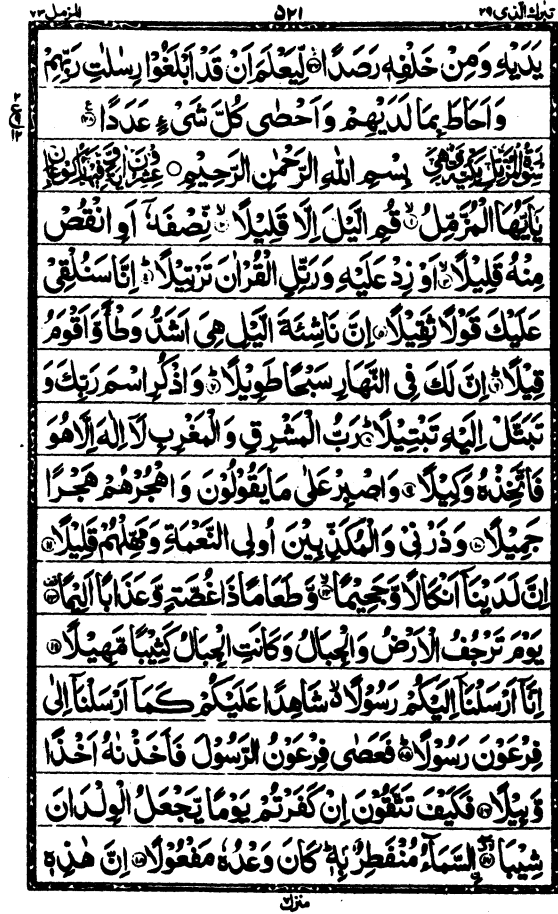 تبٰرك الذی ۲۹ ۵۲۱ المزمل ۷۳
یَدَیْهِ وَمِنْ خَلْفِهٖ رَصَدًا ۙ﴿۲۷﴾ لِّیَعْلَمَ اَنْ قَدْ اَبْلَغُوْا رِسٰلٰتِ رَبِّهِمْ
وَاَحَاطَ بِمَا لَدَیْهِمْ وَاَحْصٰی كُلَّ شَیْءٍ عَدَدًا ﴿۲۸﴾
بِسْمِ اللّٰهِ الرَّحْمٰنِ الرَّحِیْمِ
یٰۤاَیُّهَا الْمُزَّمِّلُ ۙ﴿۱﴾ قُمِ الَّیْلَ اِلَّا قَلِیْلًا ۙ﴿۲﴾ نِّصْفَهٗۤ اَوِ انْقُصْ
مِنْهُ قَلِیْلًا ۙ﴿۳﴾ اَوْ زِدْ عَلَیْهِ وَرَتِّلِ الْقُرْاٰنَ تَرْتِیْلًا ؕ﴿۴﴾ اِنَّا سَنُلْقِیْ
عَلَیْكَ قَوْلًا ثَقِیْلًا ﴿۵﴾ اِنَّ نَاشِئَةَ الَّیْلِ هِیَ اَشَدُّ وَطْاً وَّاَقْوَمُ
قِیْلًا ؕ﴿۶﴾ اِنَّ لَكَ فِی النَّهَارِ سَبْحًا طَوِیْلًا ؕ﴿۷﴾ وَاذْكُرِ اسْمَ رَبِّكَ وَ
تَبَتَّلْ اِلَیْهِ تَبْتِیْلًا ؕ﴿۸﴾ رَبُّ الْمَشْرِقِ وَالْمَغْرِبِ لَاۤ اِلٰهَ اِلَّا هُوَ
فَاتَّخِذْهُ وَكِیْلًا ﴿۹﴾ وَاصْبِرْ عَلٰی مَا یَقُوْلُوْنَ وَاهْجُرْهُمْ هَجْرًا
جَمِیْلًا ﴿۱۰﴾ وَذَرْنِیْ وَالْمُكَذِّبِیْنَ اُولِی النَّعْمَةِ وَمَهِّلْهُمْ قَلِیْلًا ﴿۱۱﴾
اِنَّ لَدَیْنَاۤ اَنْكَالًا وَّجَحِیْمًا ۙ﴿۱۲﴾ وَّطَعَامًا ذَا غُصَّةٍ وَّعَذَابًا اَلِیْمًا ﴿۱۳﴾
یَوْمَ تَرْجُفُ الْاَرْضُ وَالْجِبَالُ وَكَانَتِ الْجِبَالُ كَثِیْبًا مَّهِیْلًا ﴿۱۴﴾
اِنَّاۤ اَرْسَلْنَاۤ اِلَیْكُمْ رَسُوْلًا ۙ شَاهِدًا عَلَیْكُمْ كَمَاۤ اَرْسَلْنَاۤ اِلٰی
فِرْعَوْنَ رَسُوْلًا ؕ﴿۱۵﴾ فَعَصٰی فِرْعَوْنُ الرَّسُوْلَ فَاَخَذْنٰهُ اَخْذًا
وَّبِیْلًا ﴿۱۶﴾ فَكَیْفَ تَتَّقُوْنَ اِنْ كَفَرْتُمْ یَوْمًا یَّجْعَلُ الْوِلْدَانَ
شِیْبَا ﴿۱۷﴾ السَّمَآءُ مُنْفَطِرٌۢ بِهٖ ؕ كَانَ وَعْدُهٗ مَفْعُوْلًا ﴿۱۸﴾ اِنَّ هٰذِهٖ